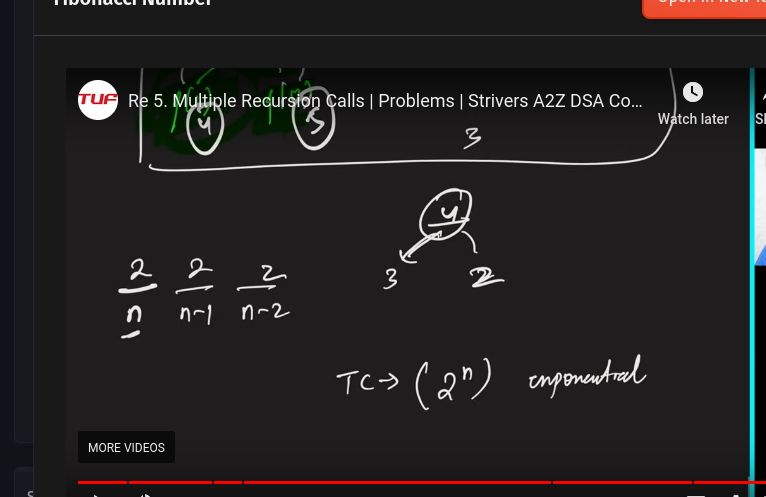 Fibonacci Number
TUF Re 5. Multiple Recursion Calls | Problems | Strivers A2Z DSA Co...
Watch later
4 3
3
4
3 2
2 2 2
n n-1 n-2
TC → (2ⁿ) exponential
MORE VIDEOS